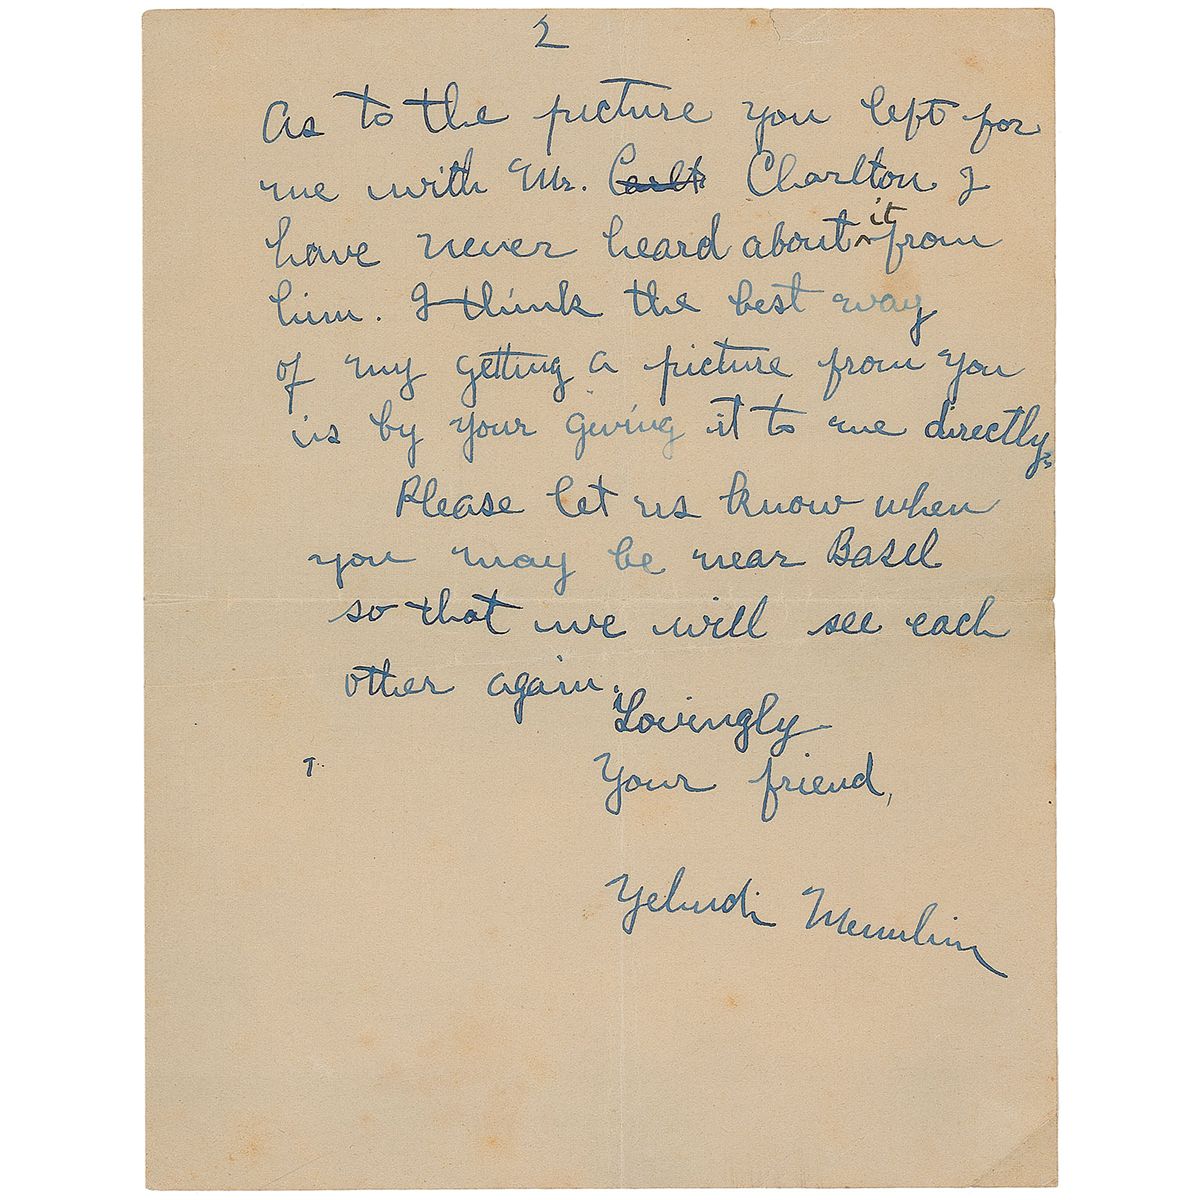 2
As to the picture you left for
me with Mr. Carlt Charlton I
have never heard about it from
him. I think the best way
of my getting a picture from you
is by your giving it to me directly.
Please let us know when
you may be near Basel
so that we will see each
other again.
Lovingly
Your friend,
Yehudi Menuhin